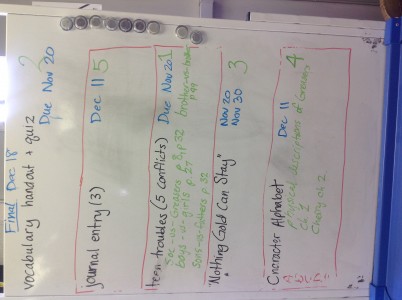 Final Dec 18
vocabulary handout + quiz
Due Nov 20
2
journal entry (3)
Dec 11
5
teen troubles (5 conflicts)
Due Nov 20
1
Soc -vs- Greasers p 8, p 32
boys -vs- girls p. 27
Sons -vs- fathers p 32
brother -vs- brother
p 99
"Nothing Gold Can Stay"
Nov 20
Nov 30
3
Character Alphabet
Dec 11
4
physical descriptions of Greasers
ch 1
Cherry ch 2